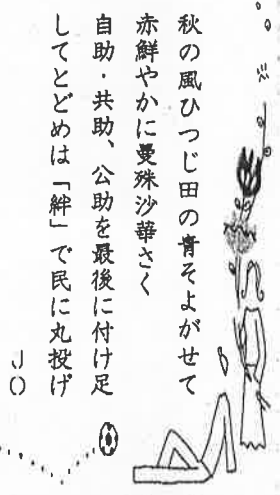 秋の風ひつじ田の青そよがせて
赤鮮やかに曼殊沙華さく
自助・共助、公助を最後に付け足
してとどめは「絆」で民に丸投げ
J〇